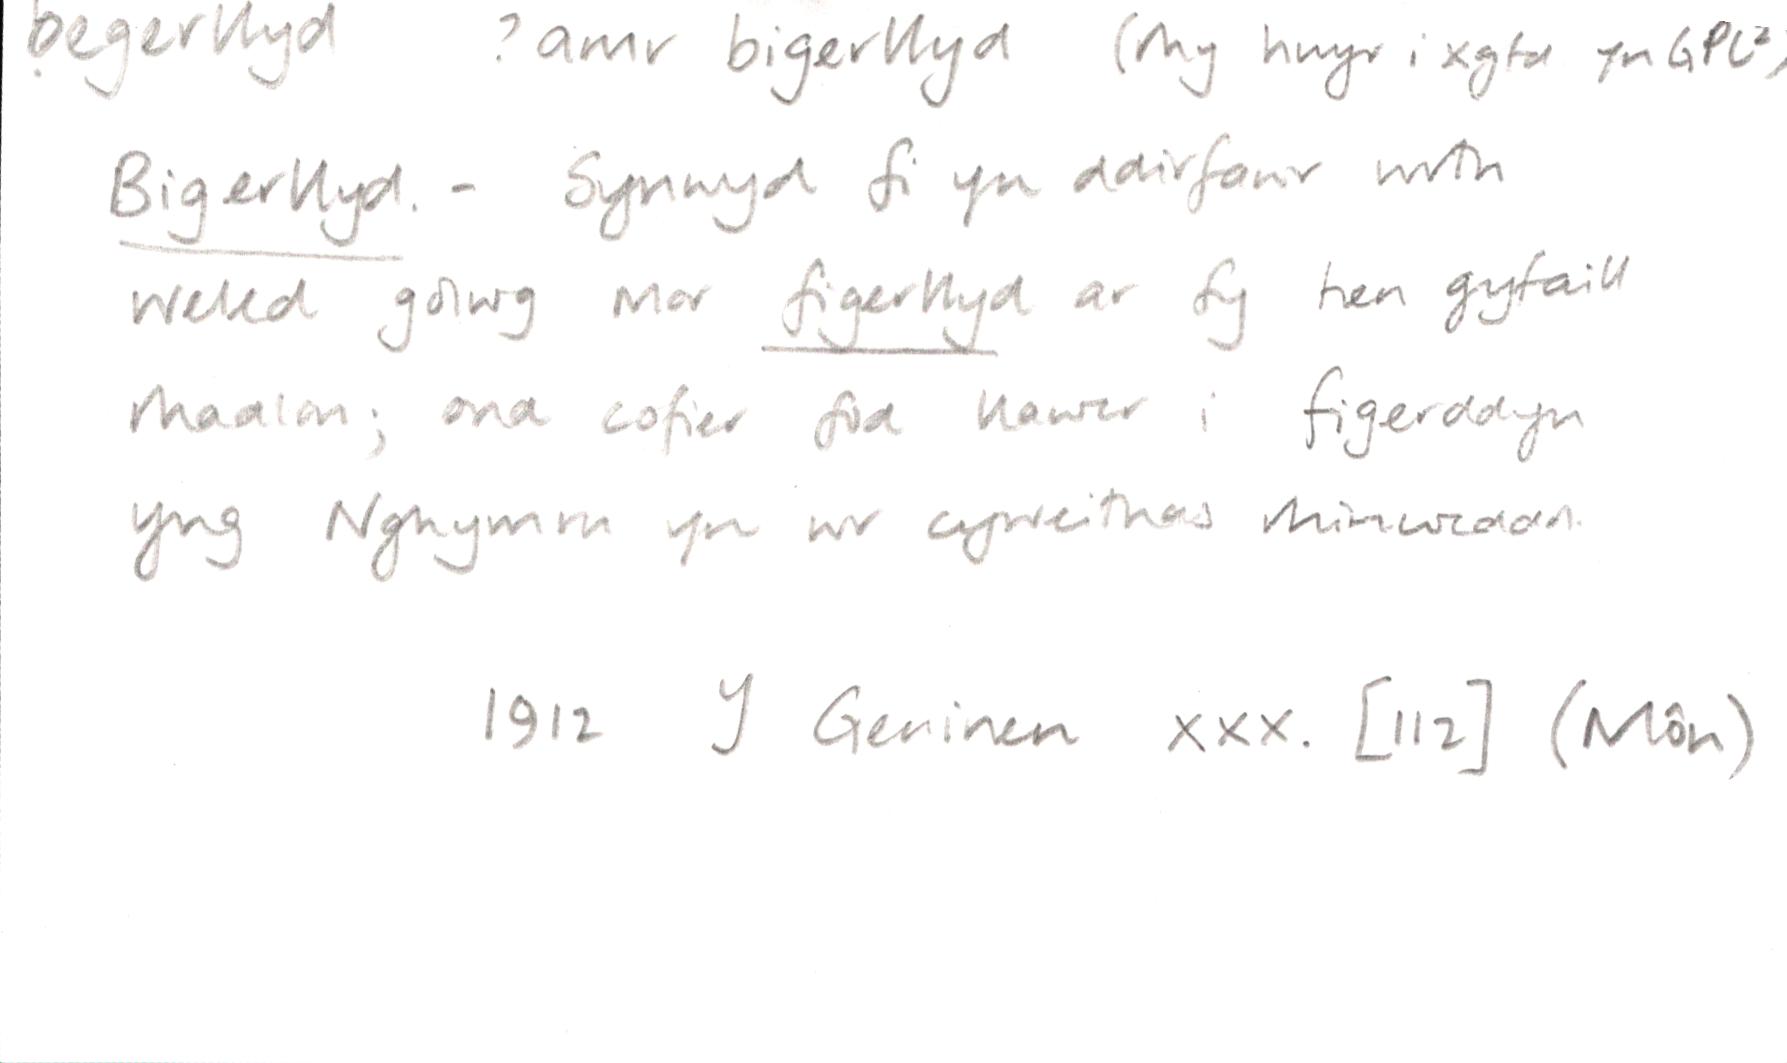 begerllyd ?amr bigerllyd (rhy hwyr i xgfd yn GPC²)
Bigerllyd. - Synnwyd fi yn ddirfawr wrth
weled golwg mor figerllyd ar fy hen gyfaill
Rhadlon; ond cofier fod llawer i figerddyn
yng Nghymru yn wr cyweithas rhinweddol.
1912 Y Geninen xxx. [112] (Môn)